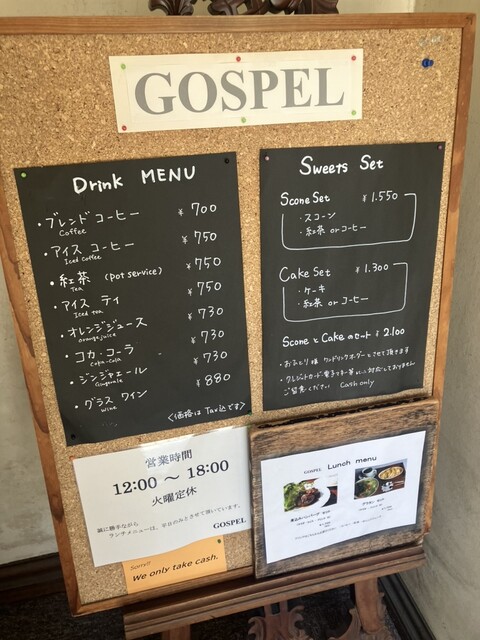 GOSPEL
Drink MENU
・ブレンド コーヒー ¥700
Coffee
・アイス コーヒー ¥750
Iced Coffee
・紅茶 (pot service) ¥750
Tea
・アイス ティ ¥750
Iced tea
・オレンジジュース ¥730
orange juice
・コカ・コーラ ¥730
Coca-Cola
・ジンジャエール ¥730
Gingerale
・グラス ワイン ¥880
wine
<価格は Tax込です>
Sweets Set
Scone Set ¥1.550
・スコーン
・紅茶 orコーヒー
Cake Set ¥1.300
・ケーキ
・紅茶 or コーヒー
Scone と Cakeのセット ¥2.100
・お一人様 ワンドリンクオーダーとさせて頂きます
・クレジットカード 電子マネー 対応しておりません
ご留意ください Cash only
営業時間
12:00 ~ 18:00
火曜定休
誠に勝手ながら
ランチメニューは、平日のみとさせて頂いています。
GOSPEL
Sorry!!
We only take cash.
GOSPEL Lunch menu
煮込みハンバーグ セット
グラタン セット